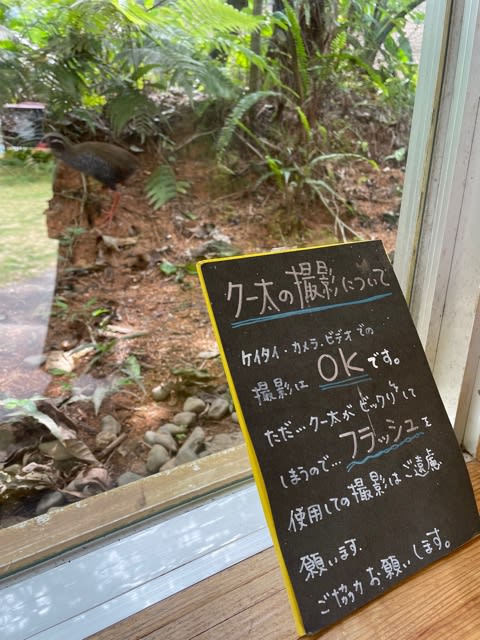 クー太の撮影について
ケイタイ・カメラ・ビデオでの
撮影は OKです。
ただ…クー太がビックリして
しまうので… フラッシュを
使用しての撮影はご遠慮
願います.
ご協力お願いします。